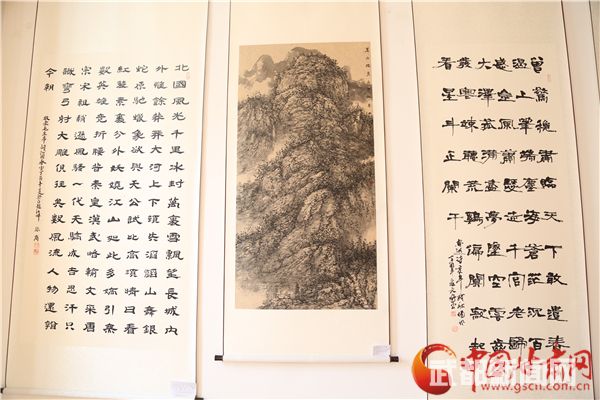 曾驚秋肅臨天下敢遣春
溫上筆端塵海蒼茫沉百
感金風蕭瑟走千官老歸
大澤菰蒲盡夢墜空雲齒
髮寒竦聽荒雞偏闃寂起
看星斗正闌干
北國風光千里冰封萬裏雪飄望長城內
外惟餘莽莽大河上下頓失滔滔山舞銀
蛇原馳蠟象欲與天公試比高須晴日看
紅裝素裹分外妖嬈江山如此多嬌引無
數英雄競折腰惜秦皇漢武略輸文采唐
宗宋祖稍遜風騷一代天驕成吉思汗只
識彎弓射大雕俱往矣數風流人物還看
今朝
中国甘肃网
www.gscn.com.cn
武都新闻网